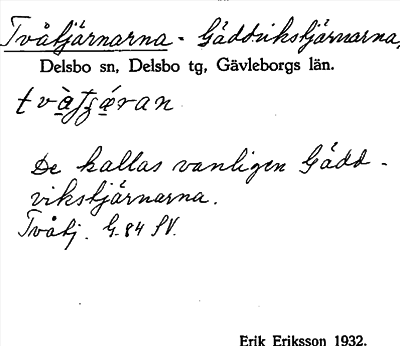 Tvåtjärnarna - Gäddvikstjärnarna,
Delsbo sn, Delsbo tg, Gävleborgs län.
De kallas vanligen Gädd-
vikstjärnarna.
Tvåtj. G. 84 SV.
Erik Eriksson 1932.